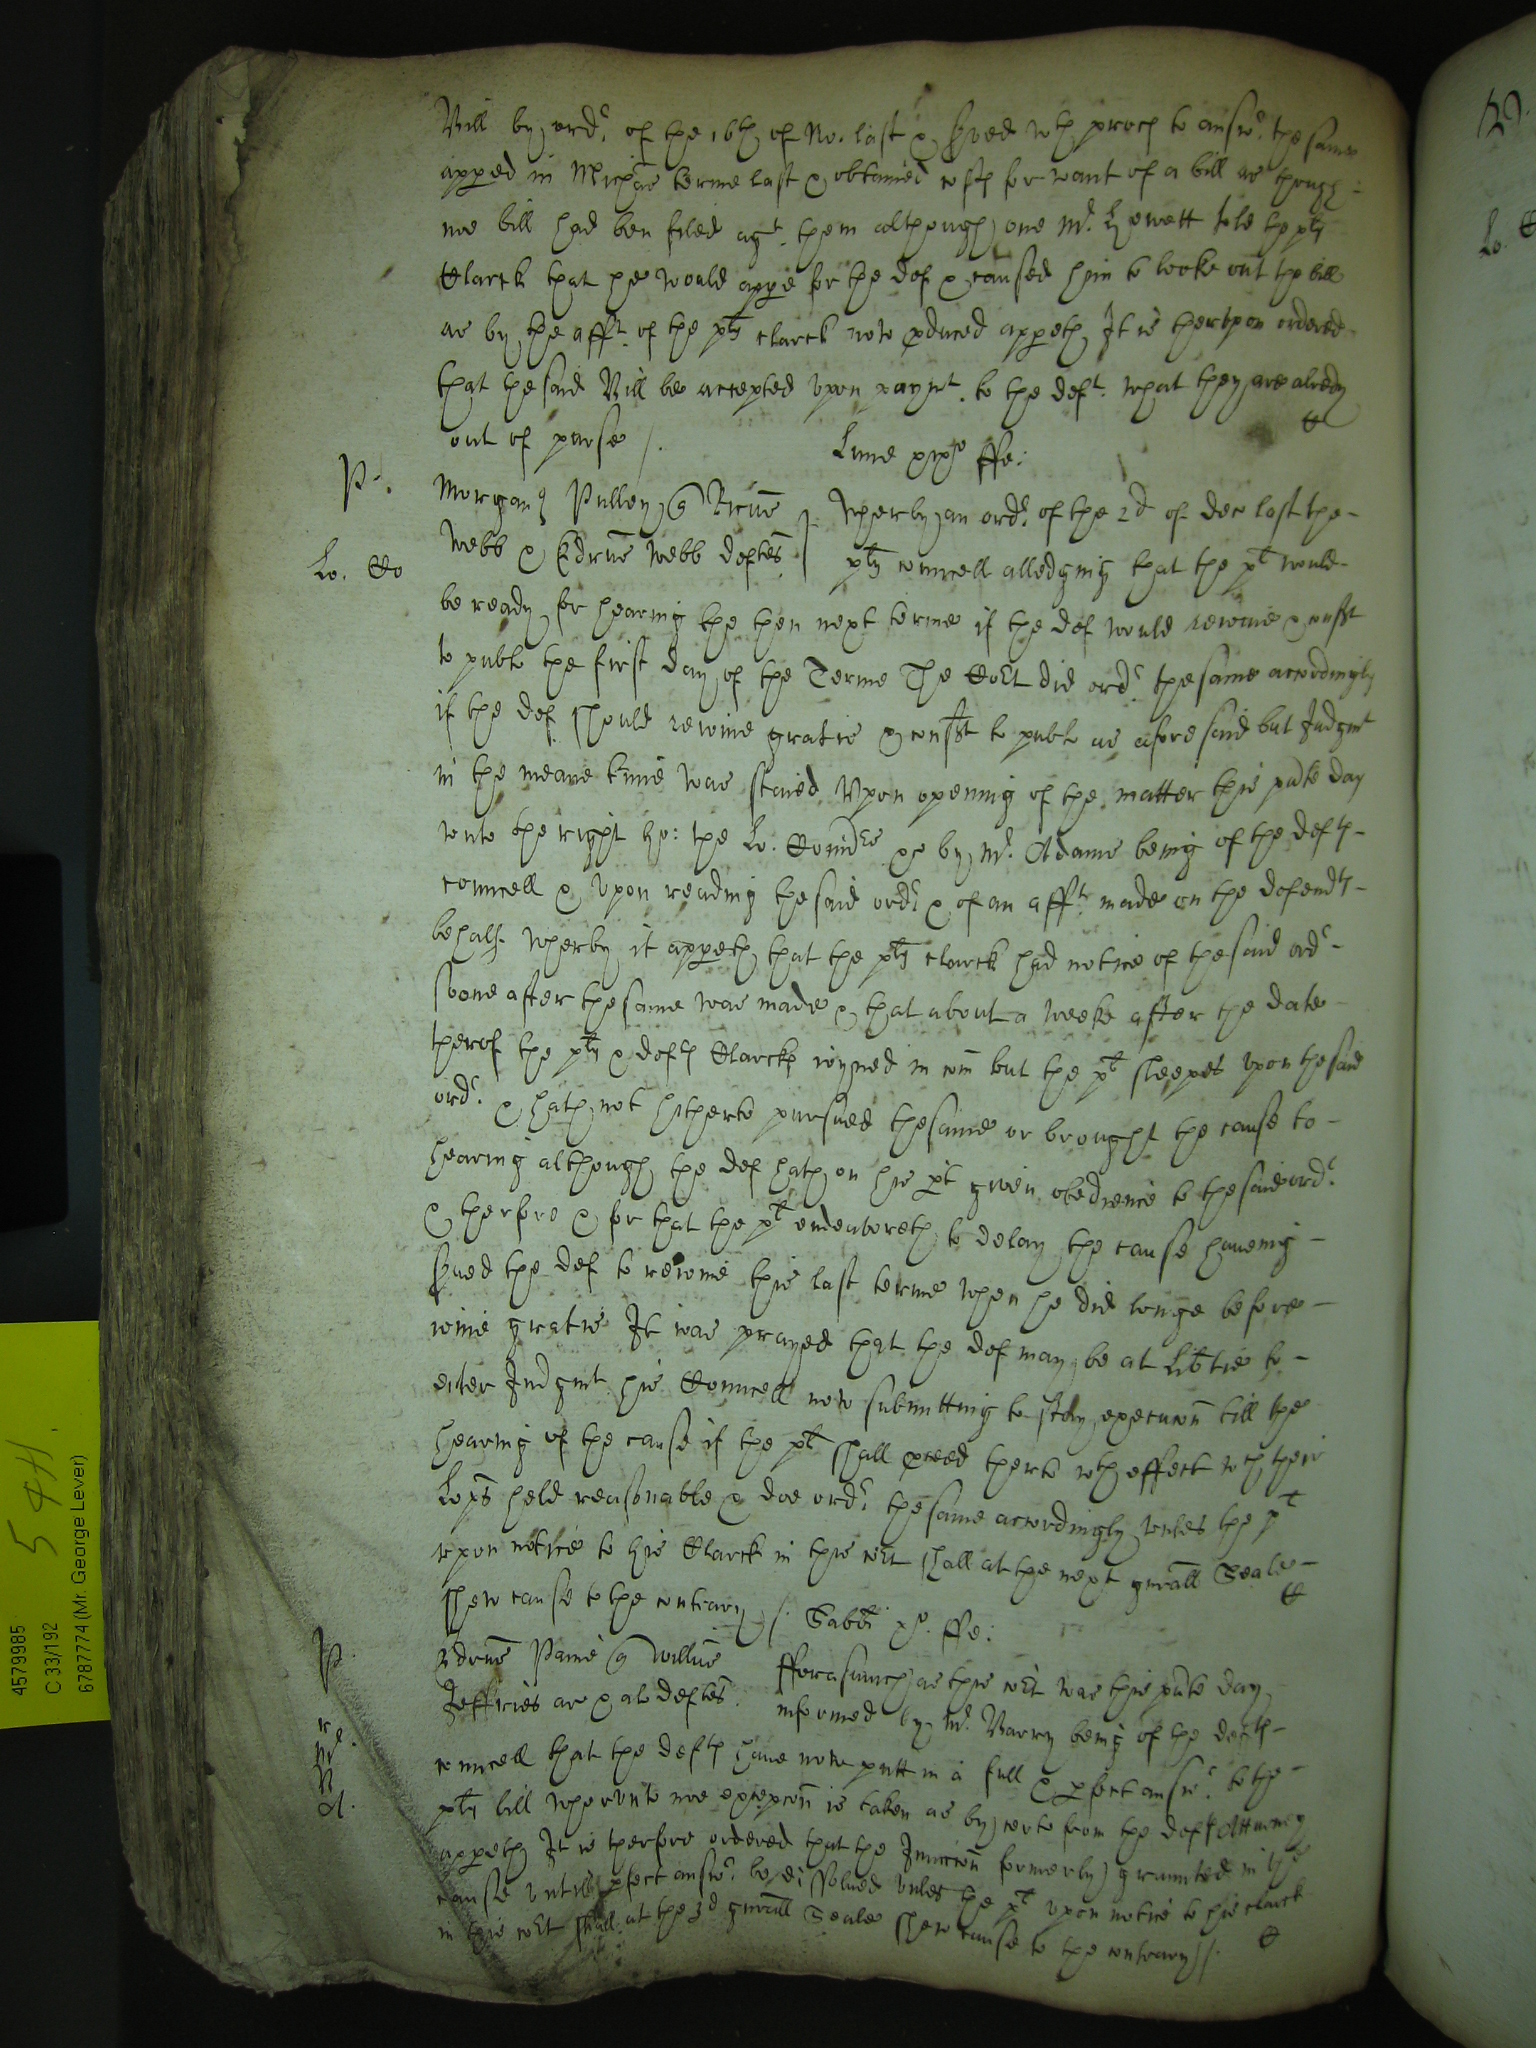 Bill by ordr. of the 16th of No. last & served wth proces to answr. the same
appered in Michas terme last & obtained costs for want of a bill as though
noe bill had ben filed agt. them although one Mr. Hewett tolde the plts
Clarck that he would appe for the def & caused him to looke out the bill
as by the afft. of the plts clarck now produced appeth It is therupon ordered
that the said Bill be accepted upon paymt. to the deft. what they are alredy
out of purse /.
Lune xixo ffe:
P.
Morgan Pulley q Bicus
Webb & Edrus Webb deftes
Wherby an ordr. of the 2d of Dec last the
Lo. Co
plts councell alledging that the plt would
be ready for hearing the then next terme if the def would reioine & consst
to publ the first day of the Terme The Cort did ordr. the same accordingly
if the def. should reioine gratis & consst to publ as aforesaid but Judgmt
in the meane time was staied Upon opening of the matter this pnte day
unto the right ho: the Lo. Comrs &c by Mr. Adams being of the defts
councell & upon reading the said ordr. & of an afft. made on the defendts
behalf. wherby it appeth that the plts clarck had notice of the said ordr
soone after the same was made & that about a weeke after the date
therof the plts & defts Clarcks ioyned in com but the plt sleepes upon the said
ordr. & hath not hitherto pursued the same or brought the cause to
hearing although the def hath on his pt given obedience to the said ordr.
& therfore & for that the plt endeavoreth to delay the cause haveing
served the def to reioine this last terme when he did longe before
ioine gratis It was prayed that the def may be at libtie to
enter Judgmt his Councell now submitting to stay execucon till the
hearing of the cause if the plt shall proceed therto wth effect wch their
Lops held reasonable & doe ordr. the same accordingly unles the plt
upon notice to his Clarck in this cort shall at the next gnrall Seale
shew cause to the contrary /.
Sabti xo. ffe:
P.
Edrus Paine q Willus
Jeffries ar & al deftes.
fforasmuch as this cort was this pnte day
informed by Mr. Barry being of the defts
councell that the defts have now putt in a full & perfect answr. to the
plts bill wherunto noe excepcon is taken as by certe from the defts Atturney
appeth It is therfore ordered that the Iniunccon formerly graunted in the
cause untill pfect answr. be dissolved unles the plt upon notice to his clarck
in this cort shall at the 3d gnrall Seale shew cause to the contrary /.
5 4H.
4579985
C 33/192
6787774 (Mr. George Lever)
Lo. C